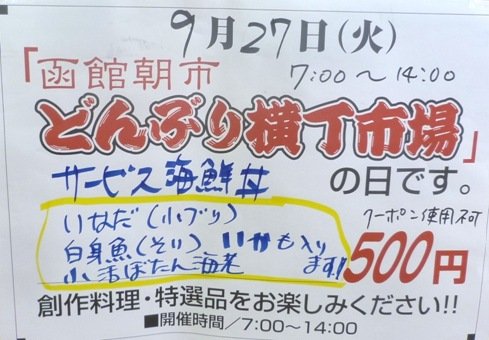 9月27日(火)
「函館朝市 7:00〜14:00
どんぶり横丁市場」
サービス海鮮丼 の日です。
いなだ(小ブリ) クーポン使用不可
白身魚(そい) いかも入ります!!
小活ぼたん海老 500円
創作料理・特選品をお楽しみください!!
■開催時間/7:00〜14:00